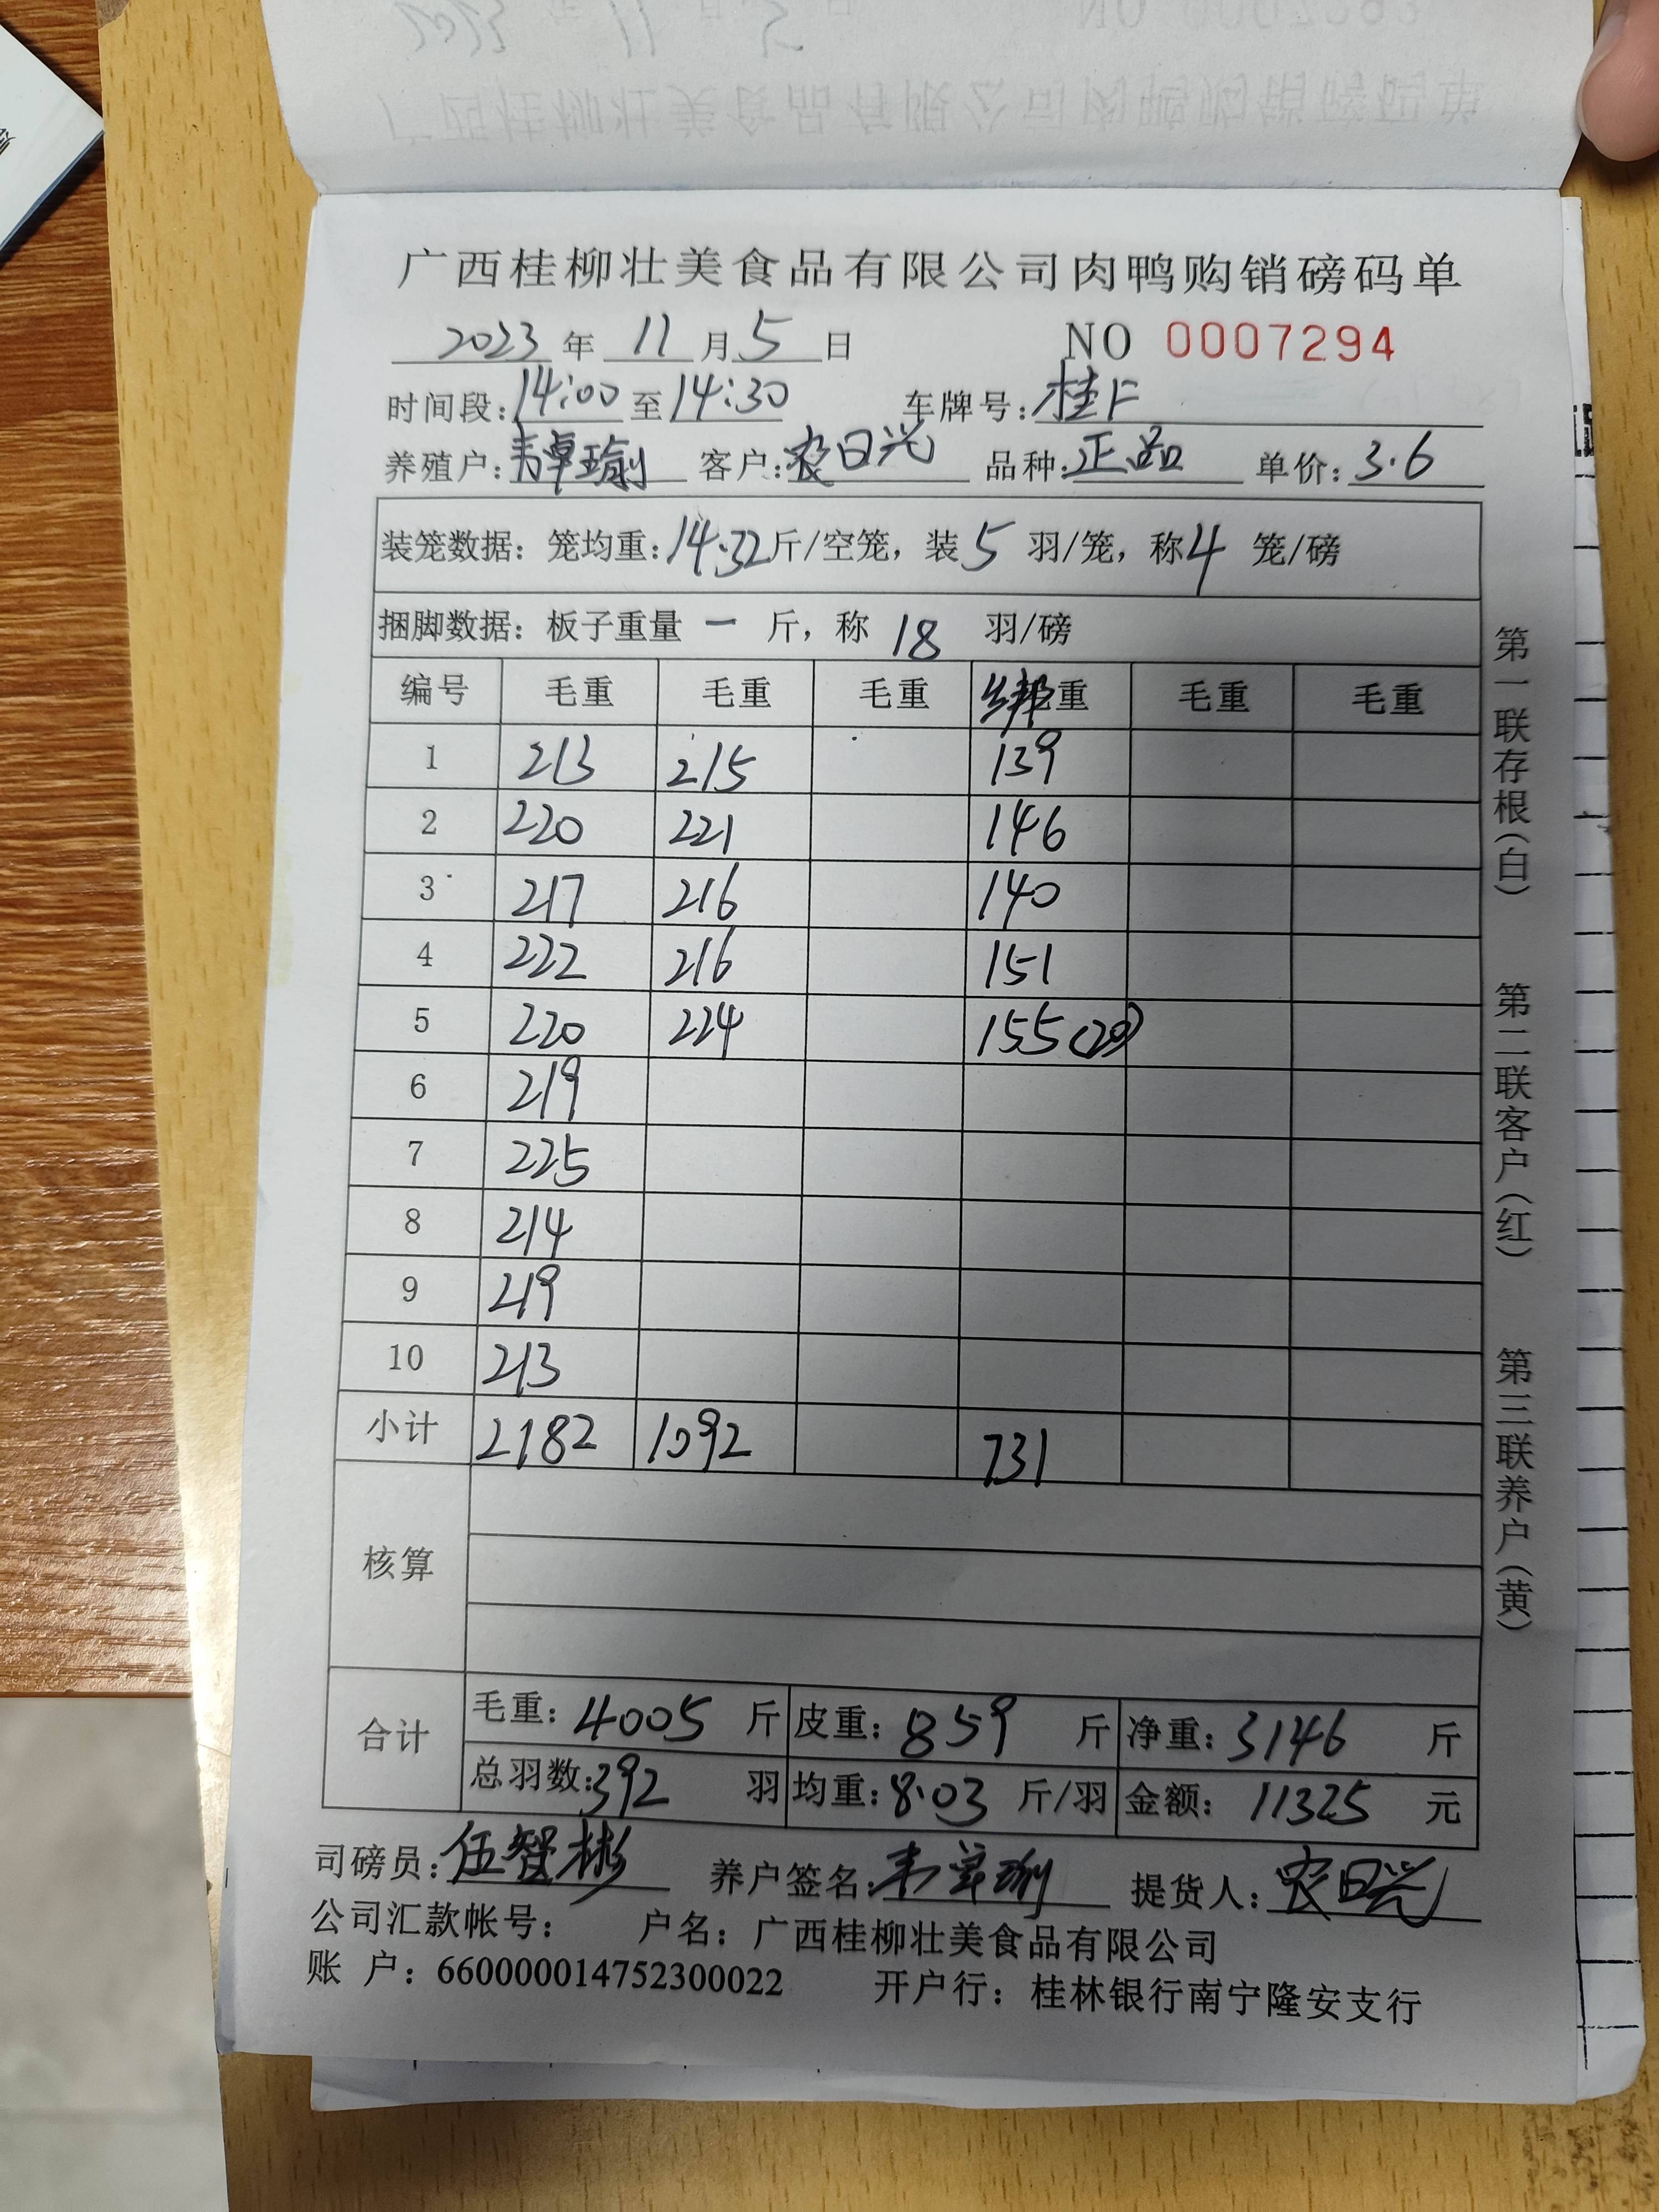 广西桂柳壮美食品有限公司肉鸭购销磅码单
2023 年 11 月 5 日 NO 0007294
时间段: 14:00 至 14:30 车牌号: 桂F
养殖户: 韦卓瑜 客户: 农日兴 品种: 正品 单价: 3.6
装笼数据: 笼均重: 14.32 斤/空笼, 装 5 羽/笼, 称 4 笼/磅
捆脚数据: 板子重量 一 斤, 称 18 羽/磅
编号 毛重 毛重 毛重 绑重 毛重 毛重
1 213 215 139
2 220 221 146
3 217 216 140
4 222 216 151
5 220 224 155(20)
6 219
7 225
8 214
9 219
10 213
小计 2182 1092 731
核算
合计 毛重: 4005 斤 皮重: 859 斤 净重: 3146 斤
总羽数: 392 羽 均重: 8.03 斤/羽 金额: 11325 元
司磅员: 伍智彬 养户签名: 韦卓瑜 提货人: 农日兴
公司汇款帐号: 户名: 广西桂柳壮美食品有限公司
账 户: 660000014752300022 开户行: 桂林银行南宁隆安支行
第一联存根(白) 第二联客户(红) 第三联养户(黄)